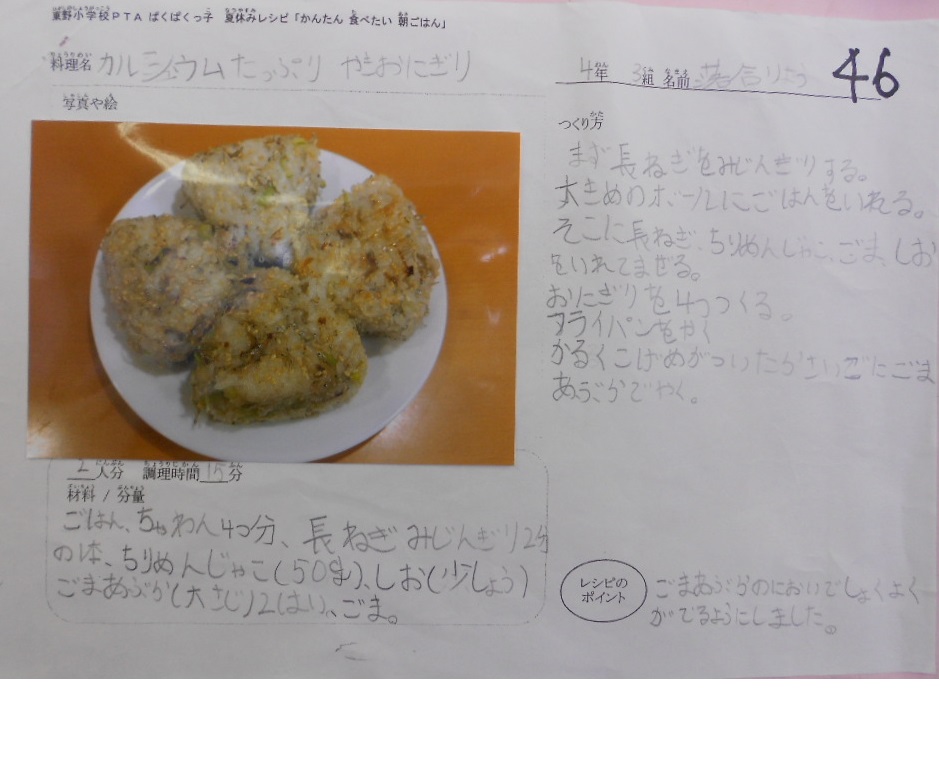 東野小学校PTA ぱくぱくっ子 夏休みレシピ「かんたん 食べたい 朝ごはん」
料理名 カルシュウムたっぷり やきおにぎり
4年 3組 名前 落合りょう
46
写真や絵
2人分 調理時間 15分
材料 / 分量
ごはん、ちゃわん4つ分、長ねぎみじんぎり2分
の1本、ちりめんじゃこ(50g)、しお(少しょう)
ごまあぶら(大さじ)2はい、ごま。
つくり方
まず長ねぎをみじんぎりする。
大きめのボールにごはんをいれる。
そこに長ねぎ、ちりめんじゃこ、ごま、しお
をいれてまぜる。
おにぎりを4つつくる。
フライパンをやく
かるくこげめがついたらさいごにごま
あぶらでやく。
レシピの
ポイント
ごまあぶらのにおいでしょくよく
がでるようにしました。